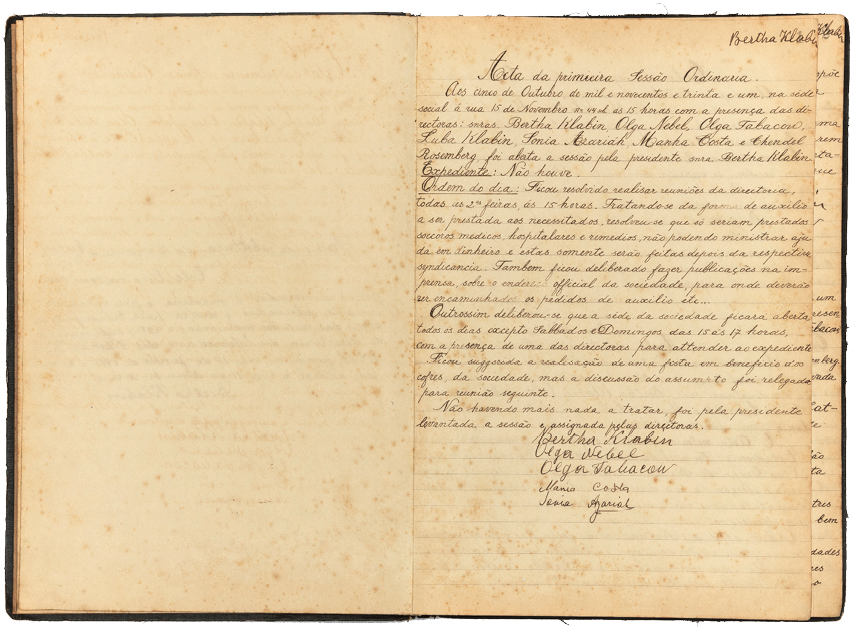 Bertha Klabin
Acta da primeira Sessão Ordinaria.
Aos cinco de Outubro de mil e novecentos e trinta e um, na séde
social á rua 15 de Novembro ás 15 horas com a presença das di-
rectoras: snras. Bertha Klabin, Olga Nebel, Olga Tabacow,
Luba Klabin, Sonia Azariah, Manha Costa e Chendel
Rosemberg, foi abata a sessão pela presidente snra Bertha Klabin
Expediente: Não houve.
Ordem do dia: Ficou resolvido realisar reuniões da directoria,
todas as 2as feiras, ás 15 horas. Tratando-se da forma de auxilio
a ser prestada aos necessitados, resolveu-se que só seriam prestados
socorros medicos, hospitalares e remedios, não podendo ministrar aju
da em dinheiro e estas somente serão feitas depois da respectiva
syndicancia. Tambem ficou deliberado fazer publicações na im-
prensa, sobre o official da sociedade, para onde deverão
ser encaminhados os pedidos de auxilio etc...
Outrossim deliberou-se que a séde da sociedade ficará aberta
todos os dias excepto Sabbados e Domingos, das 15 ás 17 horas,
com a presença de uma das directoras para attender ao expediente
Ficou suggerida a realisação de uma festa em beneficio dos
cofres da sociedade, mas a discussão do assumpto foi relegada
para reunião seguinte.
Não havendo mais nada a tratar, foi pela presidente
levantada a sessão e assignada pelas directoras.
Bertha Klabin
Olga Nebel
Olga Tabacow
Mania Costa
Sonia Azariah